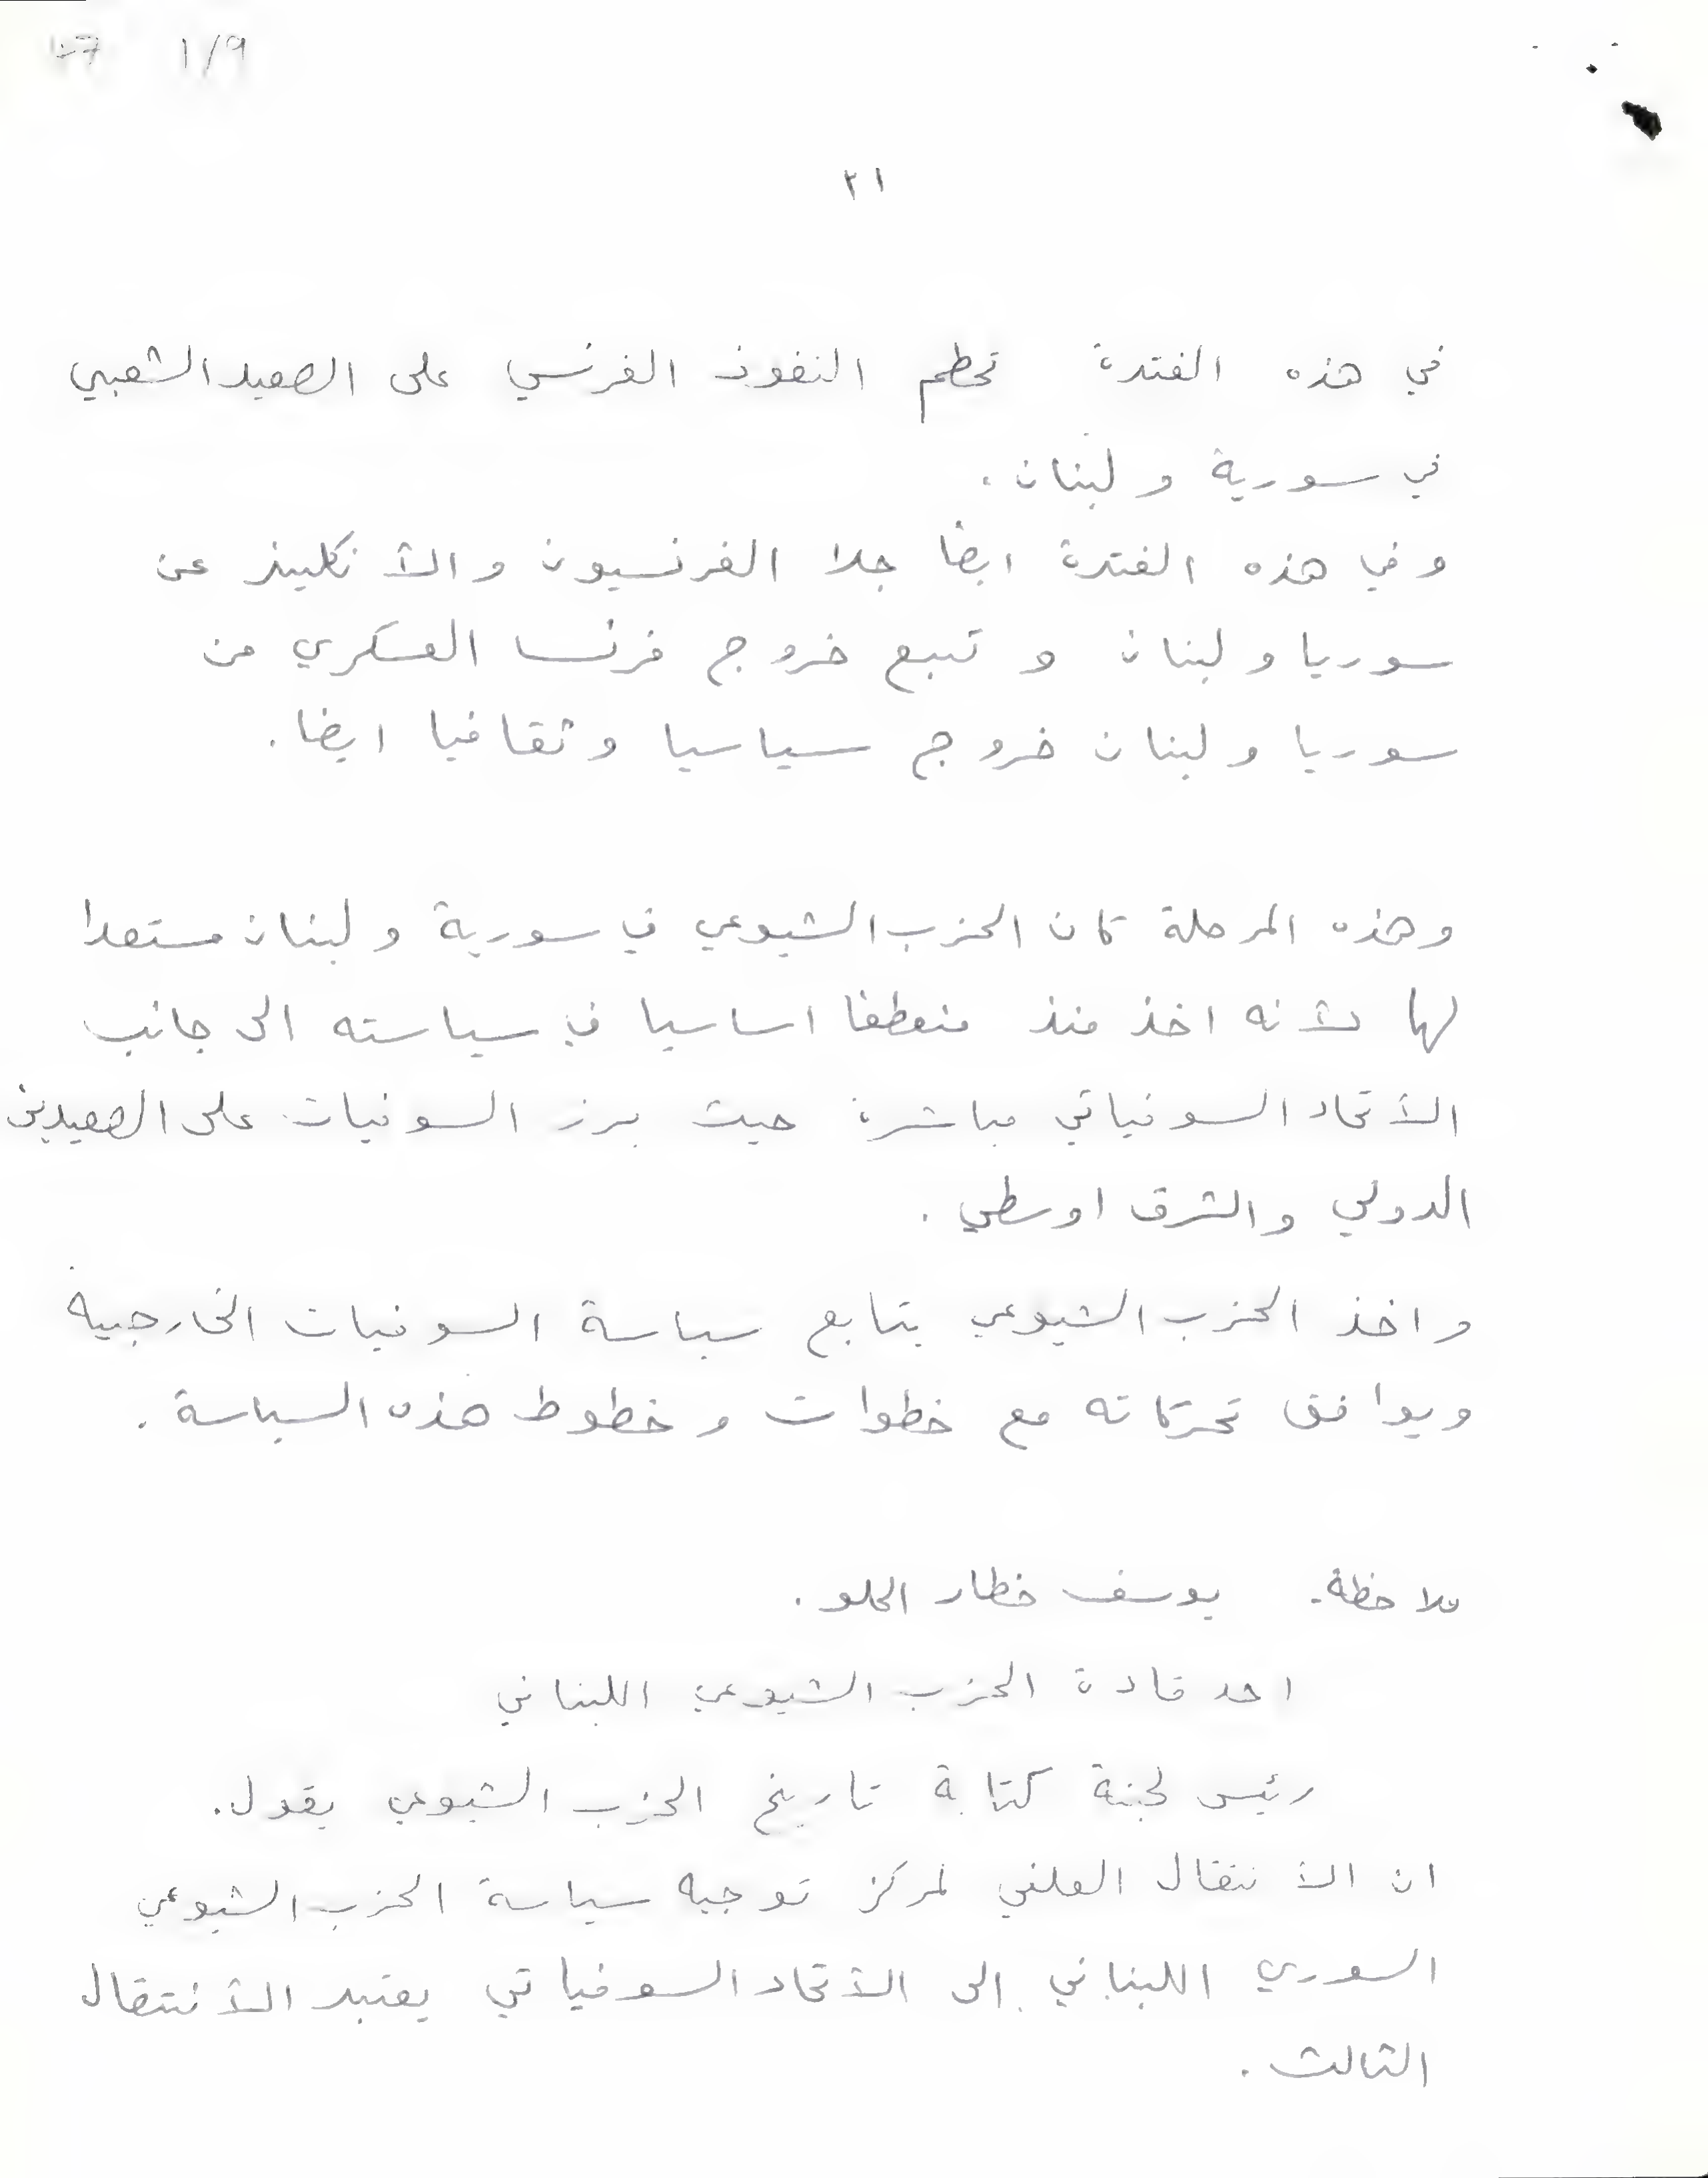 ١/٩
٢١
في هذه الفترة تحطم النفوذ الفرنسي على الصعيد الشعبي
في سورية ولبنان.
وفي هذه الفترة ايضاً جلا الفرنسيون والأنكليز عن
سوريا ولبنان وتبع خروج فرنسا العسكري من
سوريا ولبنان خروج سياسيا وثقافيا ايضا.
وهذه المرحلة كان الحزب الشيوعي في سورية ولبنان مستعدا
لها لأنه اخذ منذ منعطفا اساسيا في سياسته الى جانب
الأتحاد السوفياتي مباشرة حيث برز السوفيات على الصعيدين
الدولي والشرق اوسطي.
واخذ الحزب الشيوعي يتابع سياسة السوفيات الخارجية
ويوافق تحركاته مع خطوات وخطوط هذه السياسة.
ملاحظة- يوسف خطار الحلو.
احد قادة الحزب الشيوعي اللبناني
رئيس لجنة كتابة تاريخ الحزب الشيوعي يقول.
ان الأنتقال العلني لمركز توجيه سياسة الحزب الشيوعي
السوري اللبناني إلى الأتحاد السوفياتي يعتبر الأنتقال
الثالث.